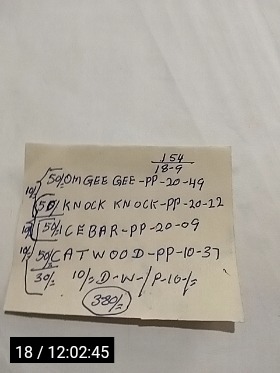 154
18-9
50/OMGEE GEE-PP-20-49
50/KNOCK KNOCK-PP-20-22
50/ICEBAR-PP-20-09
50/CATWOOD-PP-10-37
30/= 10/=D-W-/P-10-/=
330/=
10/
10/
10/
18 / 12:02:45